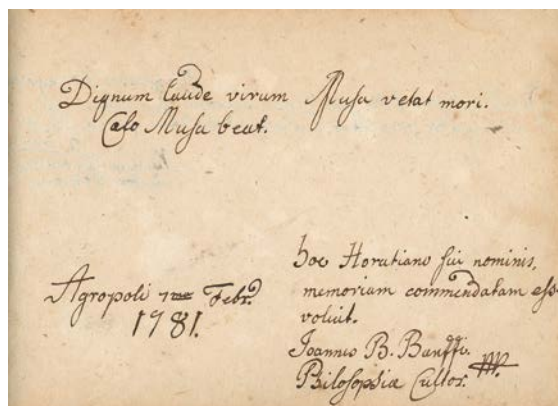 Dignum laude virum Musa vetat mori.
Cælo Musa beat.
Agropoli 7ma Febr.
1781.
hoc Horatiano sui nominis,
memoriam commendatam esse
voluit.
Joannes B. Banffi.
Philosophiæ Cultor.